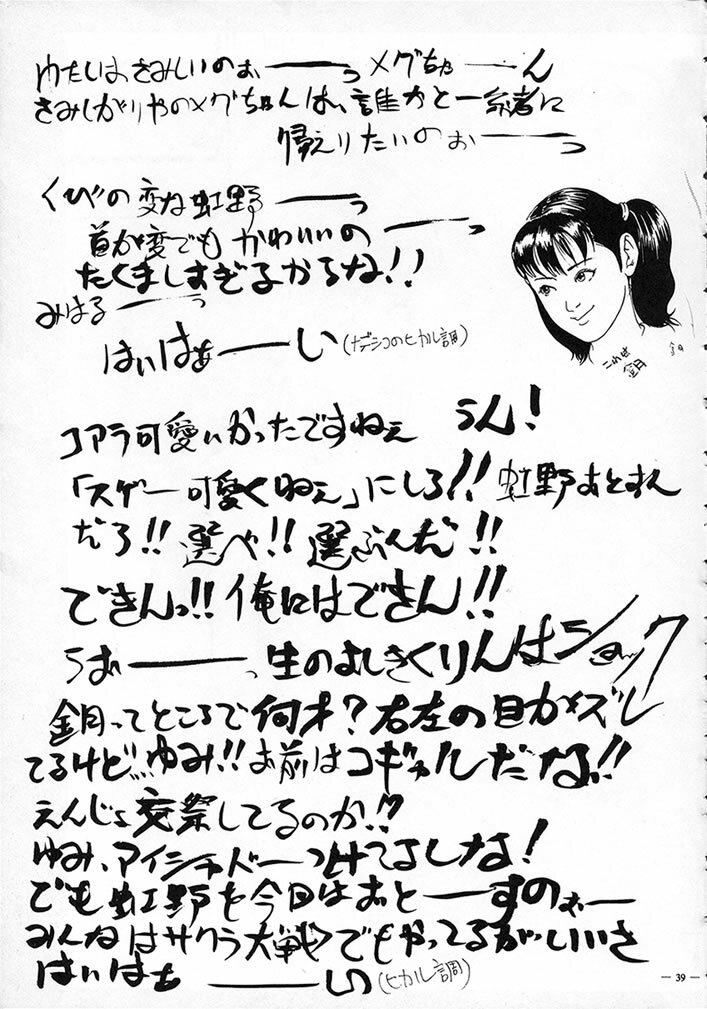 ゆたいよ、さみしいのぉーーっ メグちゃーーん
さみしがりやのメグちゃんは、誰かと一緒に
帰えりたいのぉーーっ
くびの変な虹野ーーっ
首が変でもかわいいのーーっ
たくましすぎるからな!!
みはるーーっ
はいはぁーーい(ナデシコのヒカル調)
これは
鈅
コアラ可愛いかったですねぇ うん!
「スゲー可愛くねぇ」にしろ!! 虹野あとまん
だろ!! 選べ!! 選ぶんだ!!
できんっ!! 俺にはできん!!
うおーーっ生のよしきくりんはショック
鈅ってところで何才?右左の目がズレ
てるけど…ゆみ!!お前はコギャルだな!!
えんじょ交祭してるのか!?
ゆみ、アイシャドーつけてよしな!
でも虹野を今日はおとーーすのぉー
みんなはサクラ大戦でもやってるがいいさ
はいはぁーーい(ヒカル調)
— 39 —